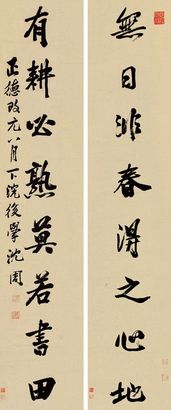 無日非春得之心地
有耕必熟莫若書田
正德改元八月下浣後學沈周